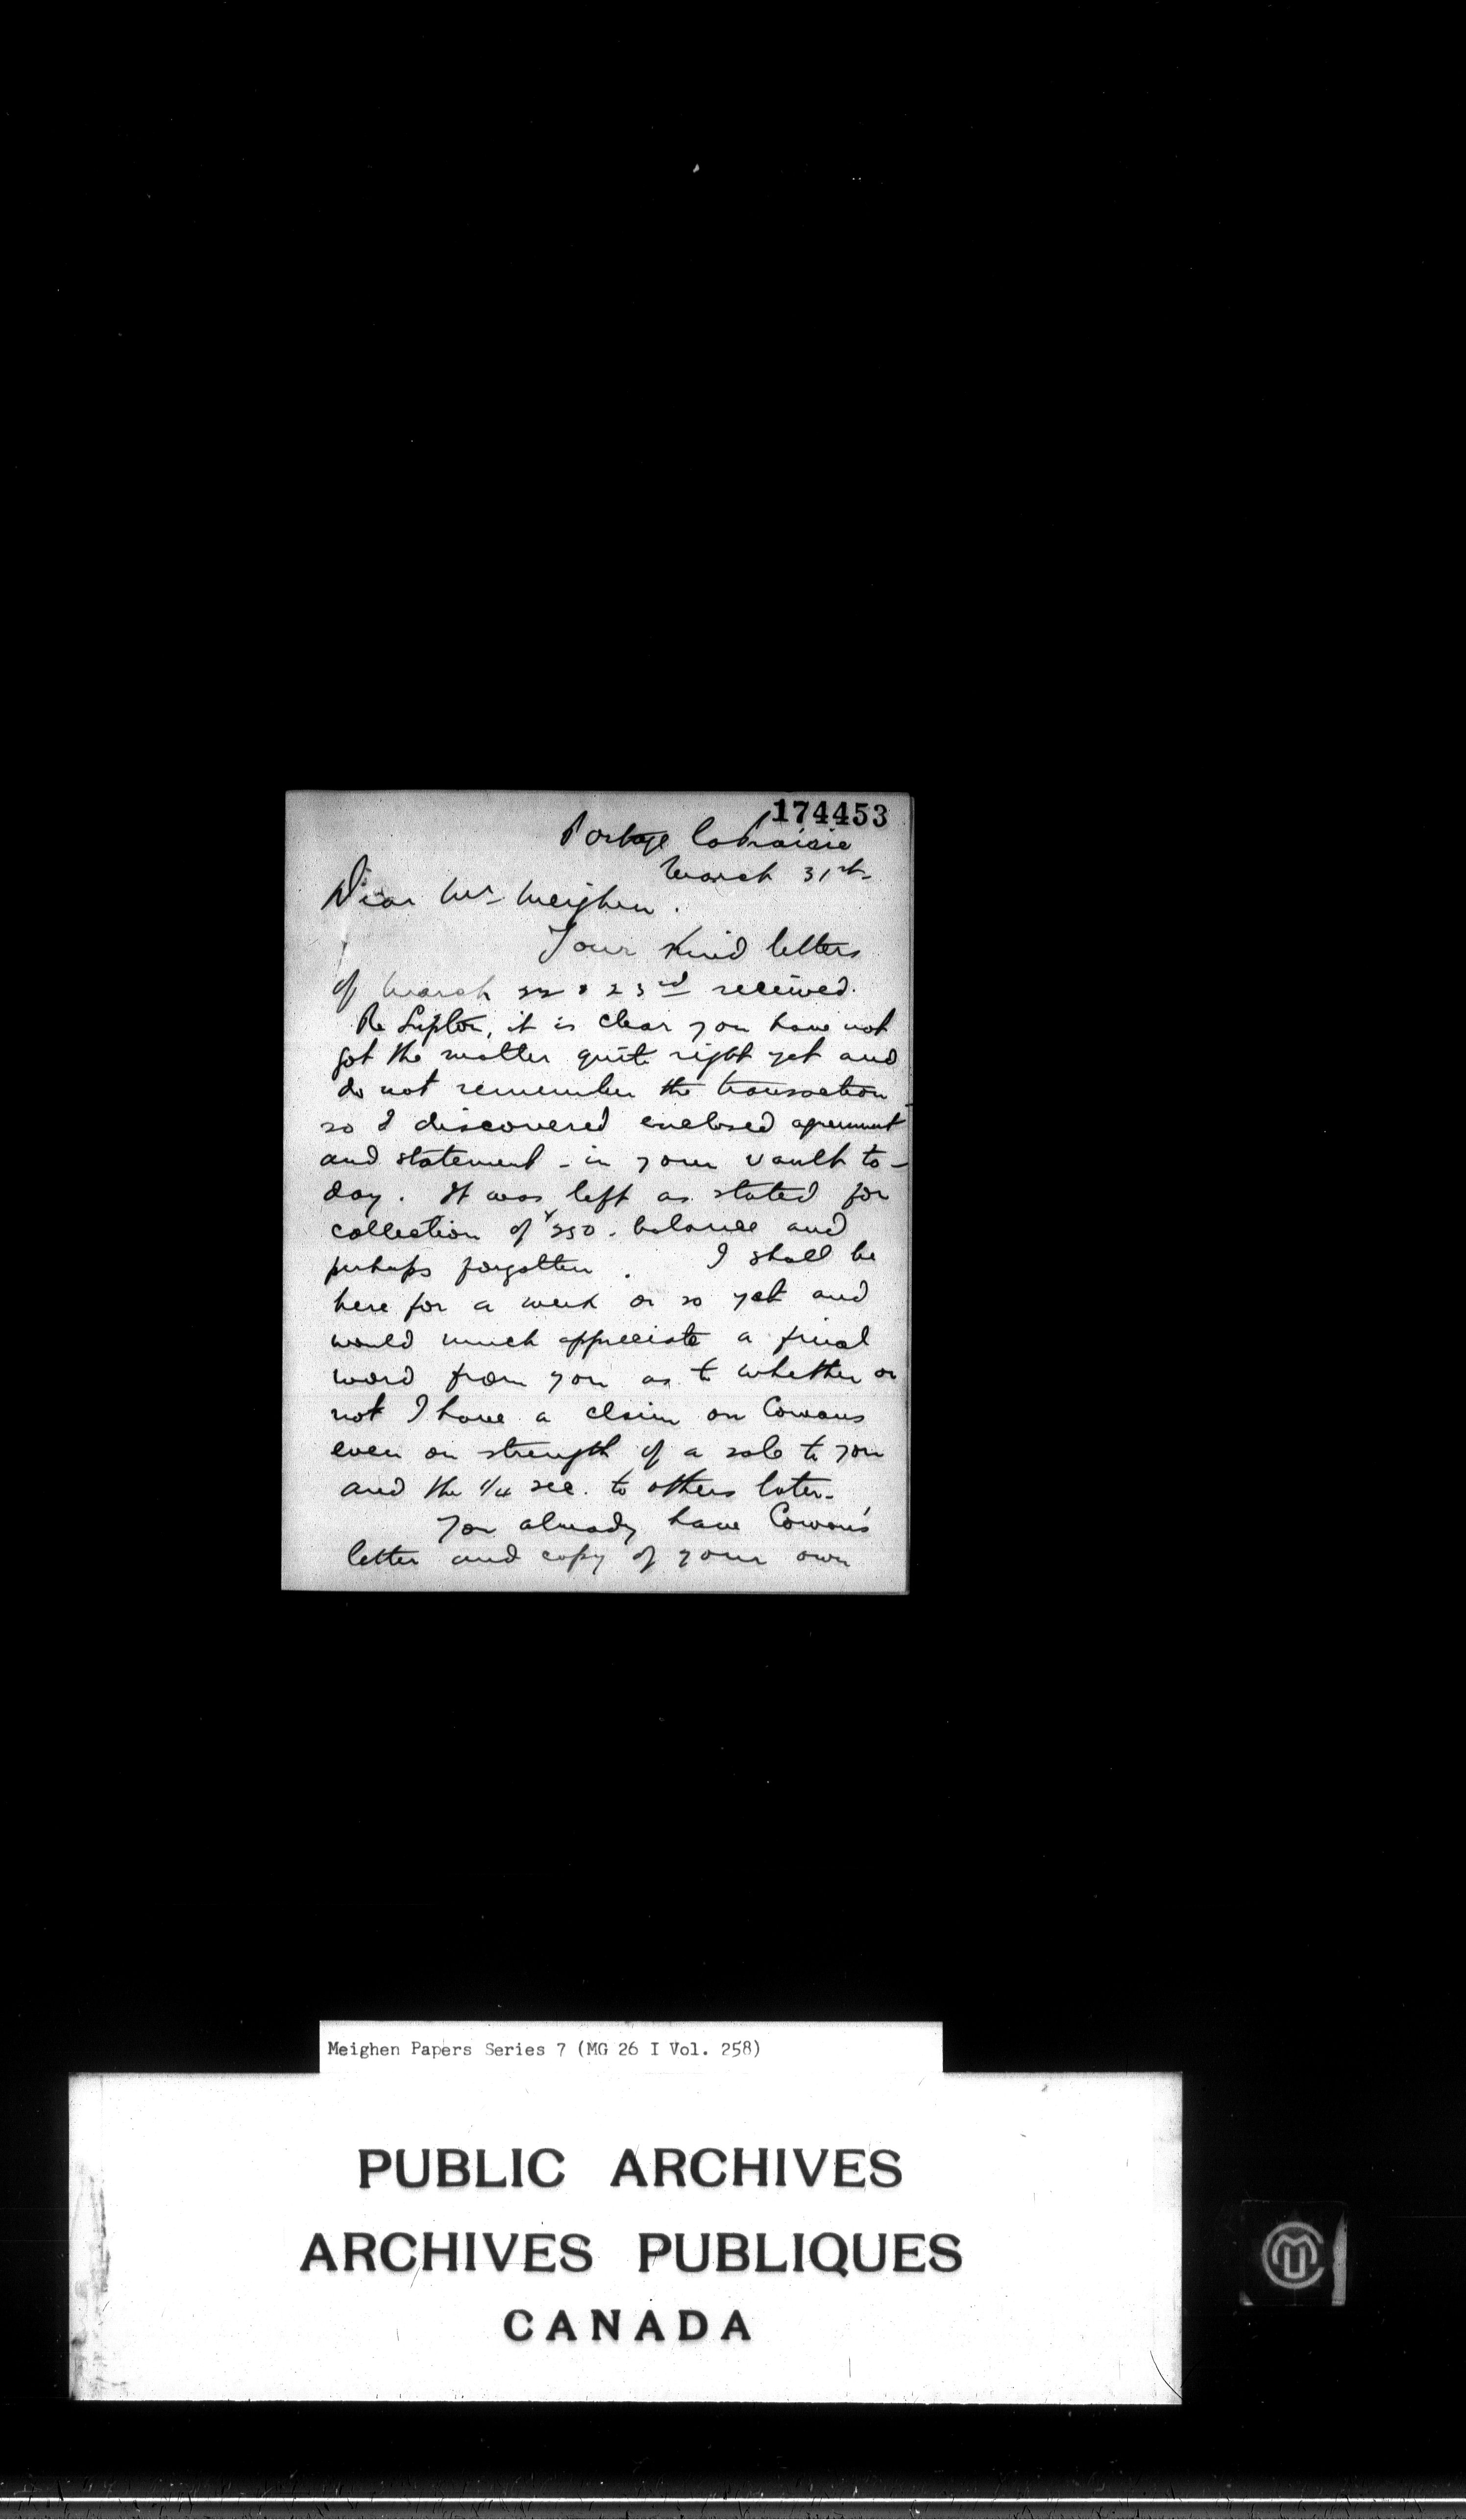 174453
Portage Laprairie
March 31st
Dear Mr Meighen.
Your kind letters
of March 22 & 23rd received.
Re Lipton, it is clear you have not
got the matter quite right yet and
do not remember the transaction
so I discovered enclosed agreement
and statement - in your vault to-
day. It was left as stated for
collection of $250. balance and
perhaps forgotten. I shall be
here for a week or so yet and
would much appreciate a final
word from you as to whether or
not I have a claim on Cowans
even on strength of a sale to you
and the 1/4 sec. to others later.
You already have Cowan's
letter and copy of your own
Meighen Papers Series 7 (MG 26 I Vol. 258)
PUBLIC ARCHIVES
ARCHIVES PUBLIQUES
CANADA